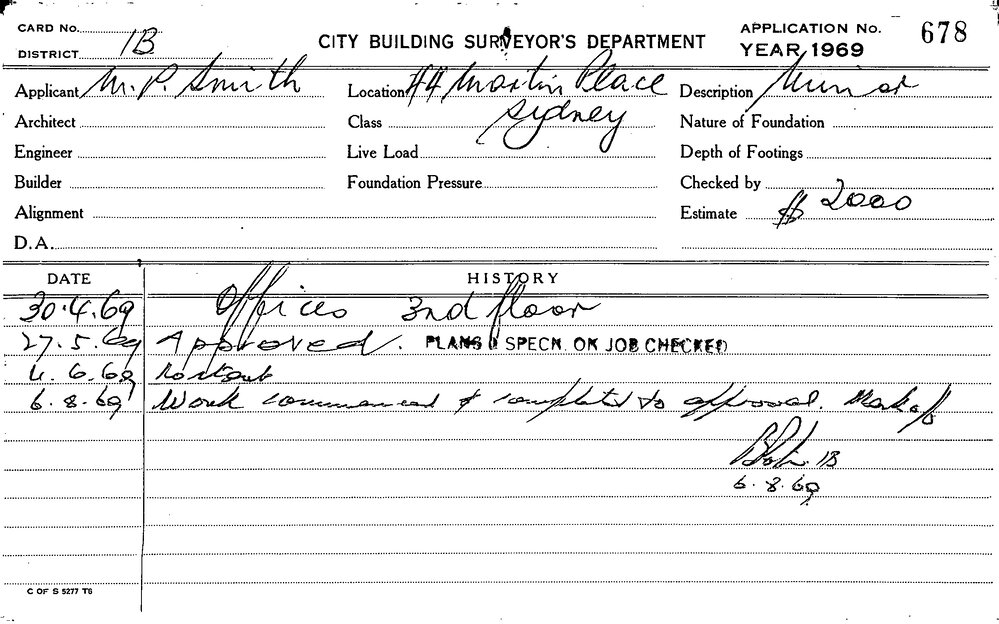 CARD No.
APPLICATION No. 678
DISTRICT 1B
CITY BUILDING SURVEYOR'S DEPARTMENT
YEAR 1969
Applicant M. P. Smith
Location 44 Martin Place
Description Minor
Architect
Class Sydney
Nature of Foundation
Engineer
Live Load
Depth of Footings
Builder
Foundation Pressure
Checked by
Alignment
Estimate $ 2000
D.A.
DATE HISTORY
30.4.69 Offices 3rd floor
27.5.69 Approved. PLANS & SPECN. ON JOB CHECKED
4.6.69 No start
6.8.69 Work commenced & completed to approval. Mark off
1B
6.8.69
C OF S 5277 T6